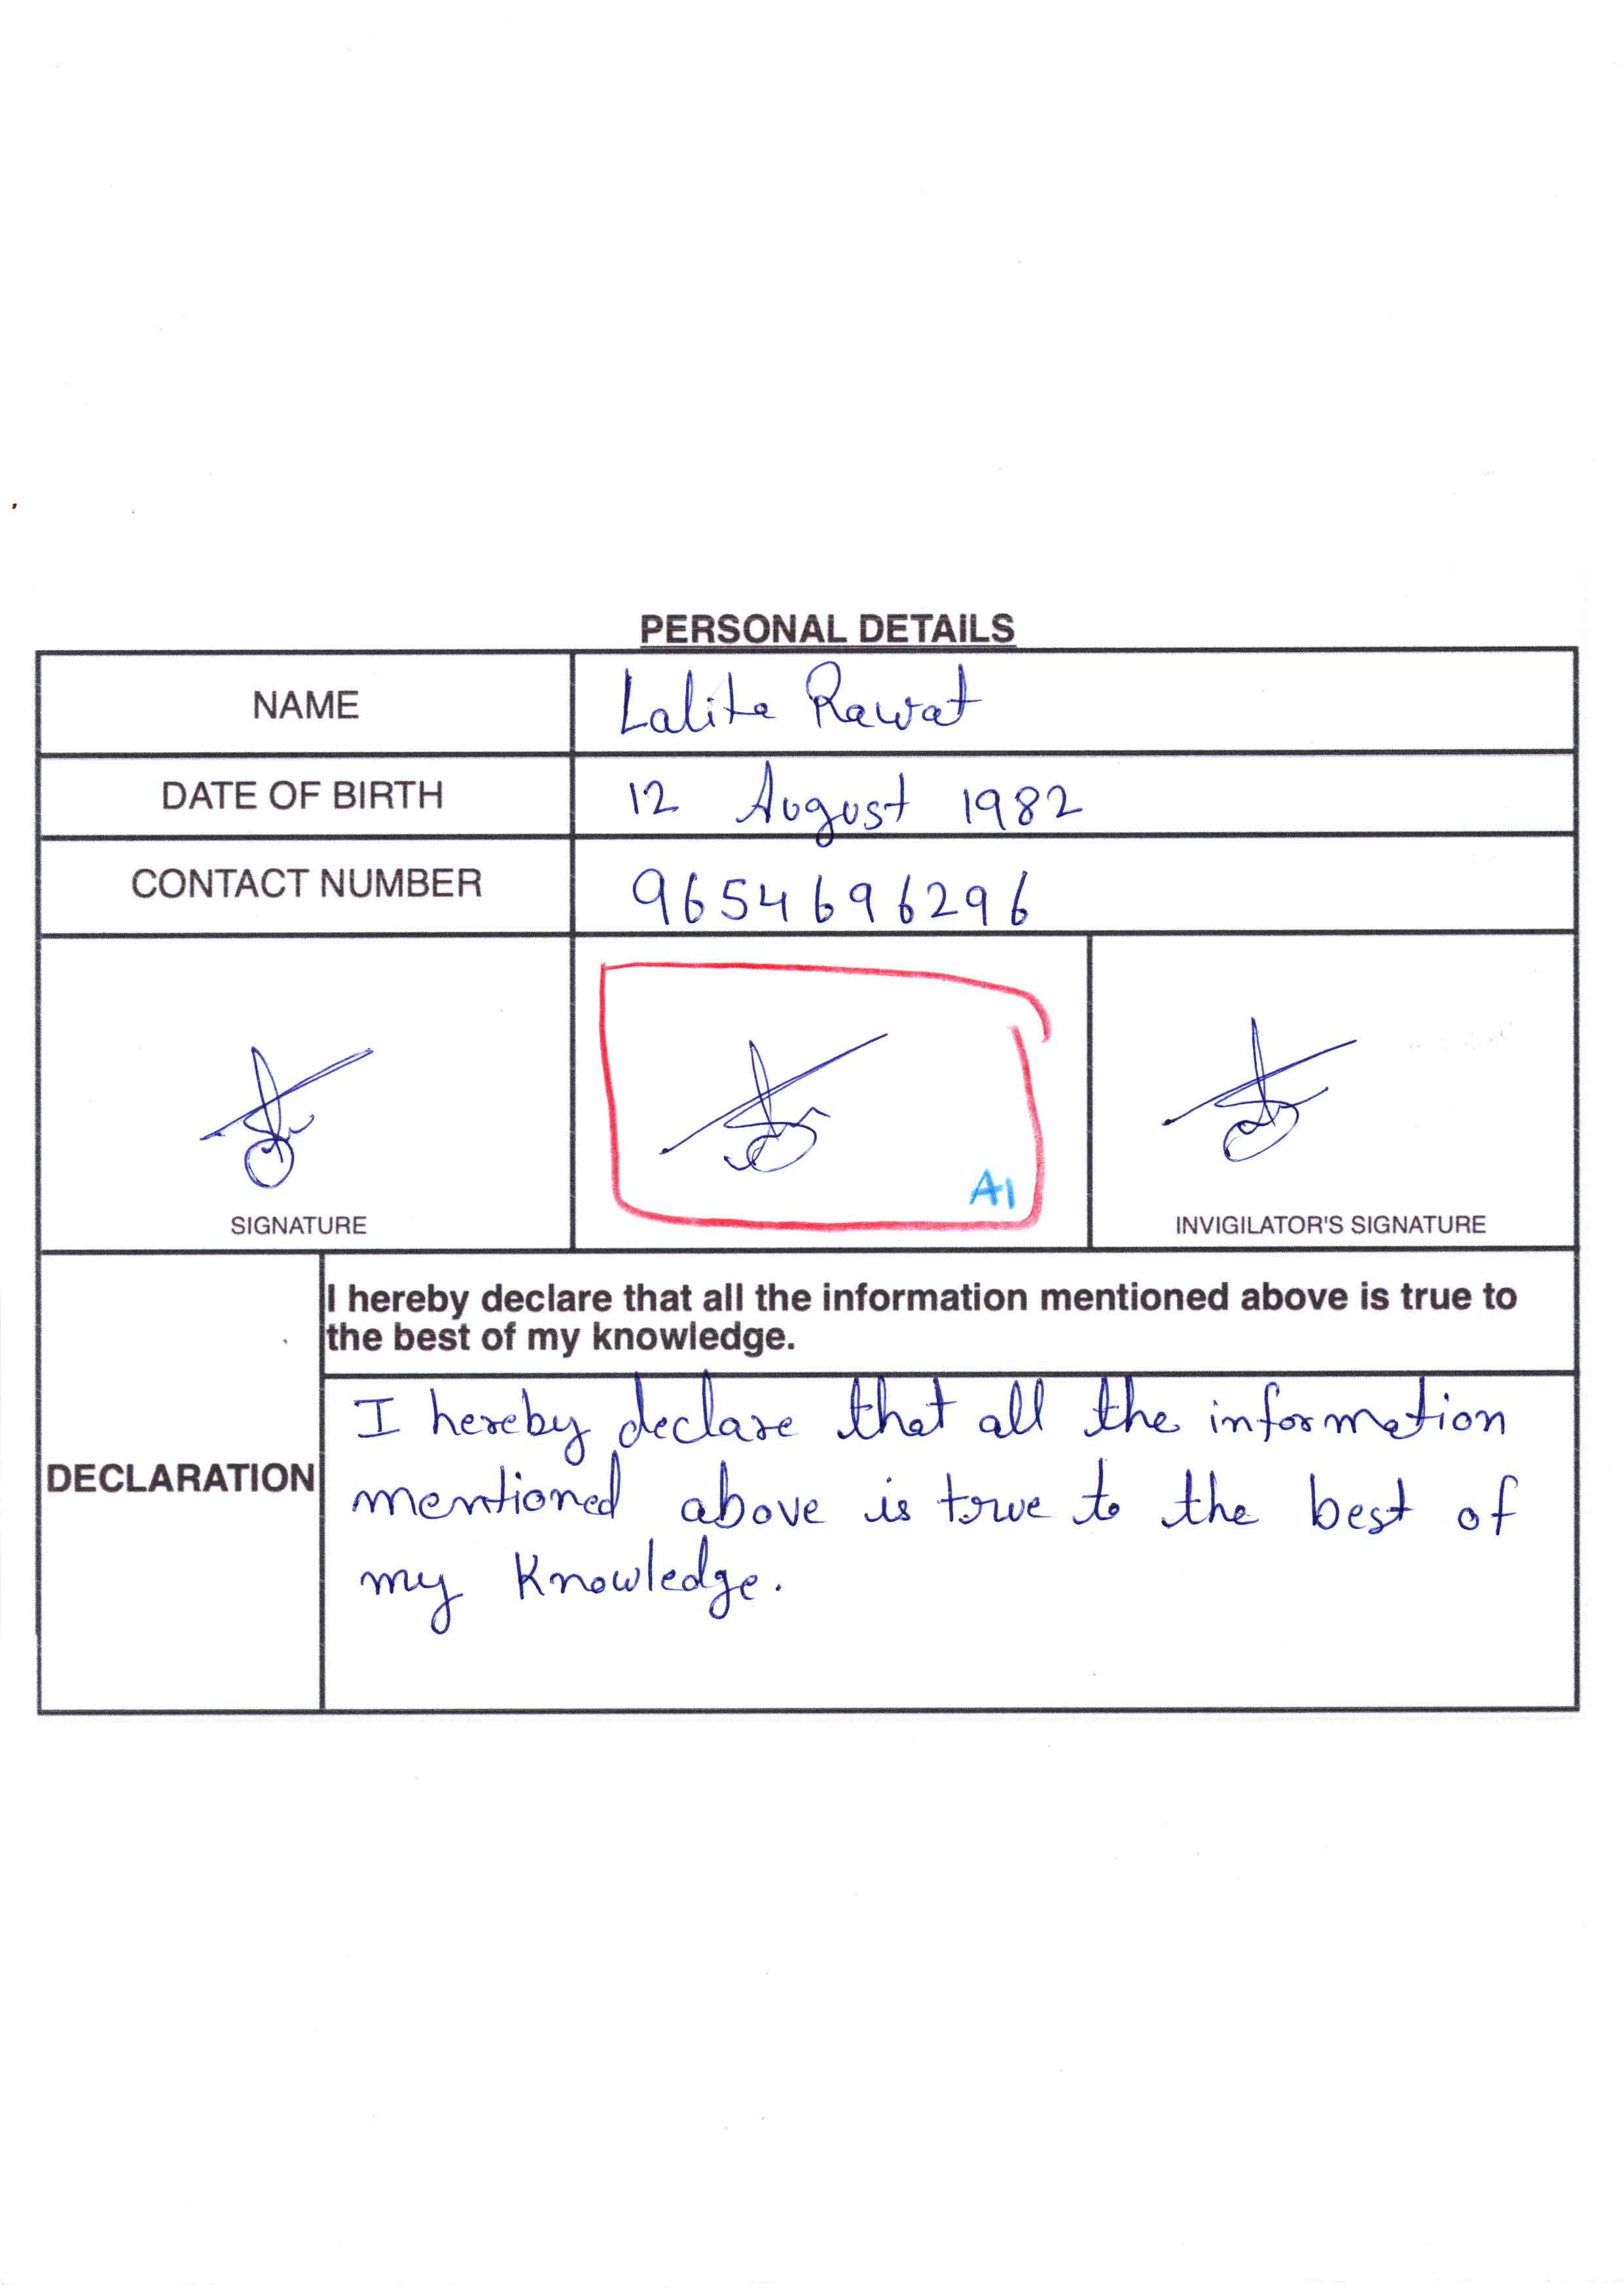 PERSONAL DETAILS
NAME
Lalita Rawat
DATE OF BIRTH
12 August 1982
CONTACT NUMBER
9654696296
A1
SIGNATURE
INVIGILATOR'S SIGNATURE
DECLARATION
I hereby declare that all the information mentioned above is true to
the best of my knowledge.
I hereby declare that all the information
mentioned above is true to the best of
my knowledge.